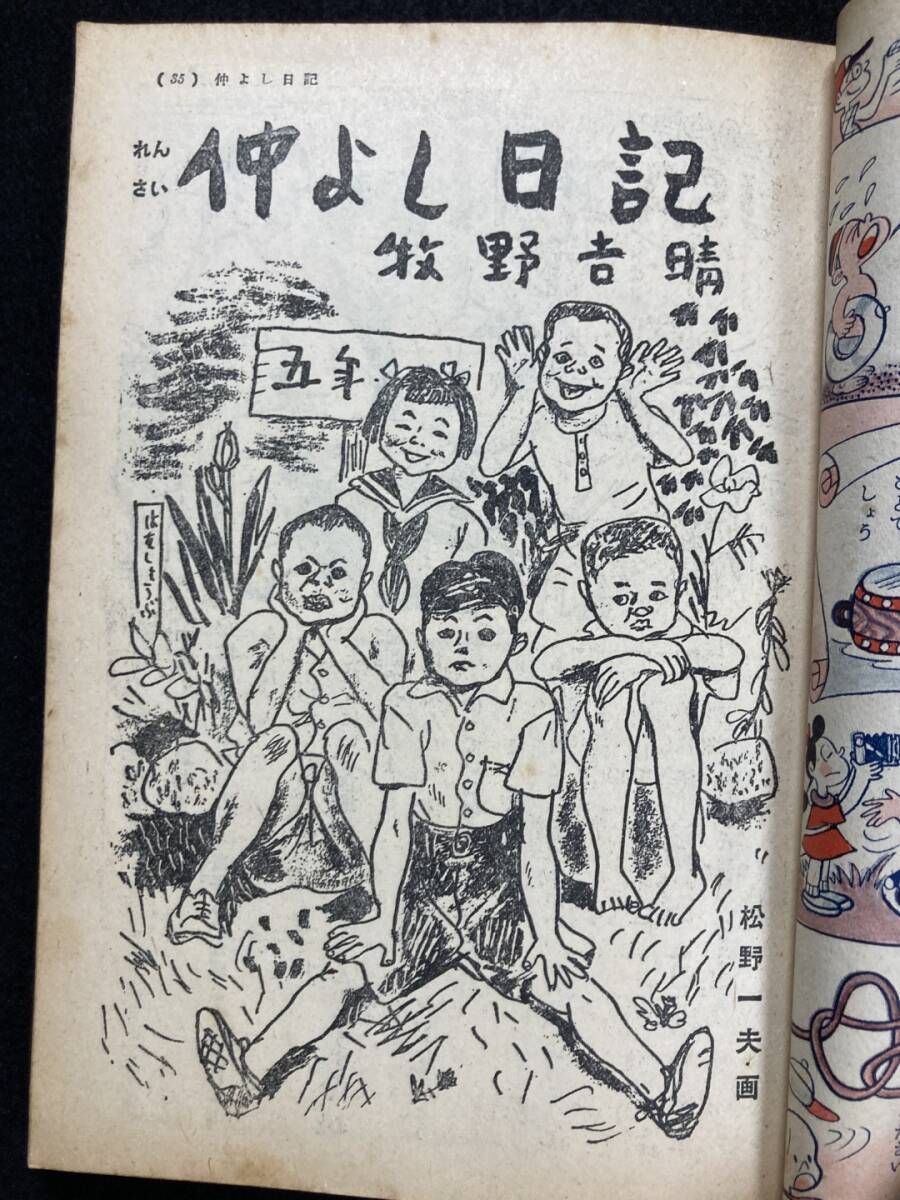 (35) 仲よし日記
れん
さい
仲よし日記
牧野吉晴
五年
はなしょうぶ
松野一夫・画
しょう